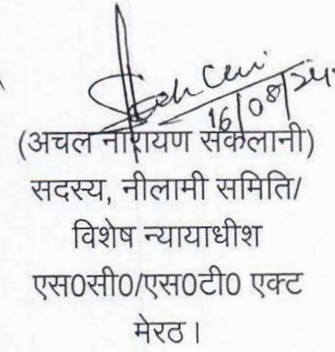 16/08/24
(अचल नारायण सकलानी)
सदस्य, नीलामी समिति/
विशेष न्यायाधीश
एस0सी0/एस0टी0 एक्ट
मेरठ।